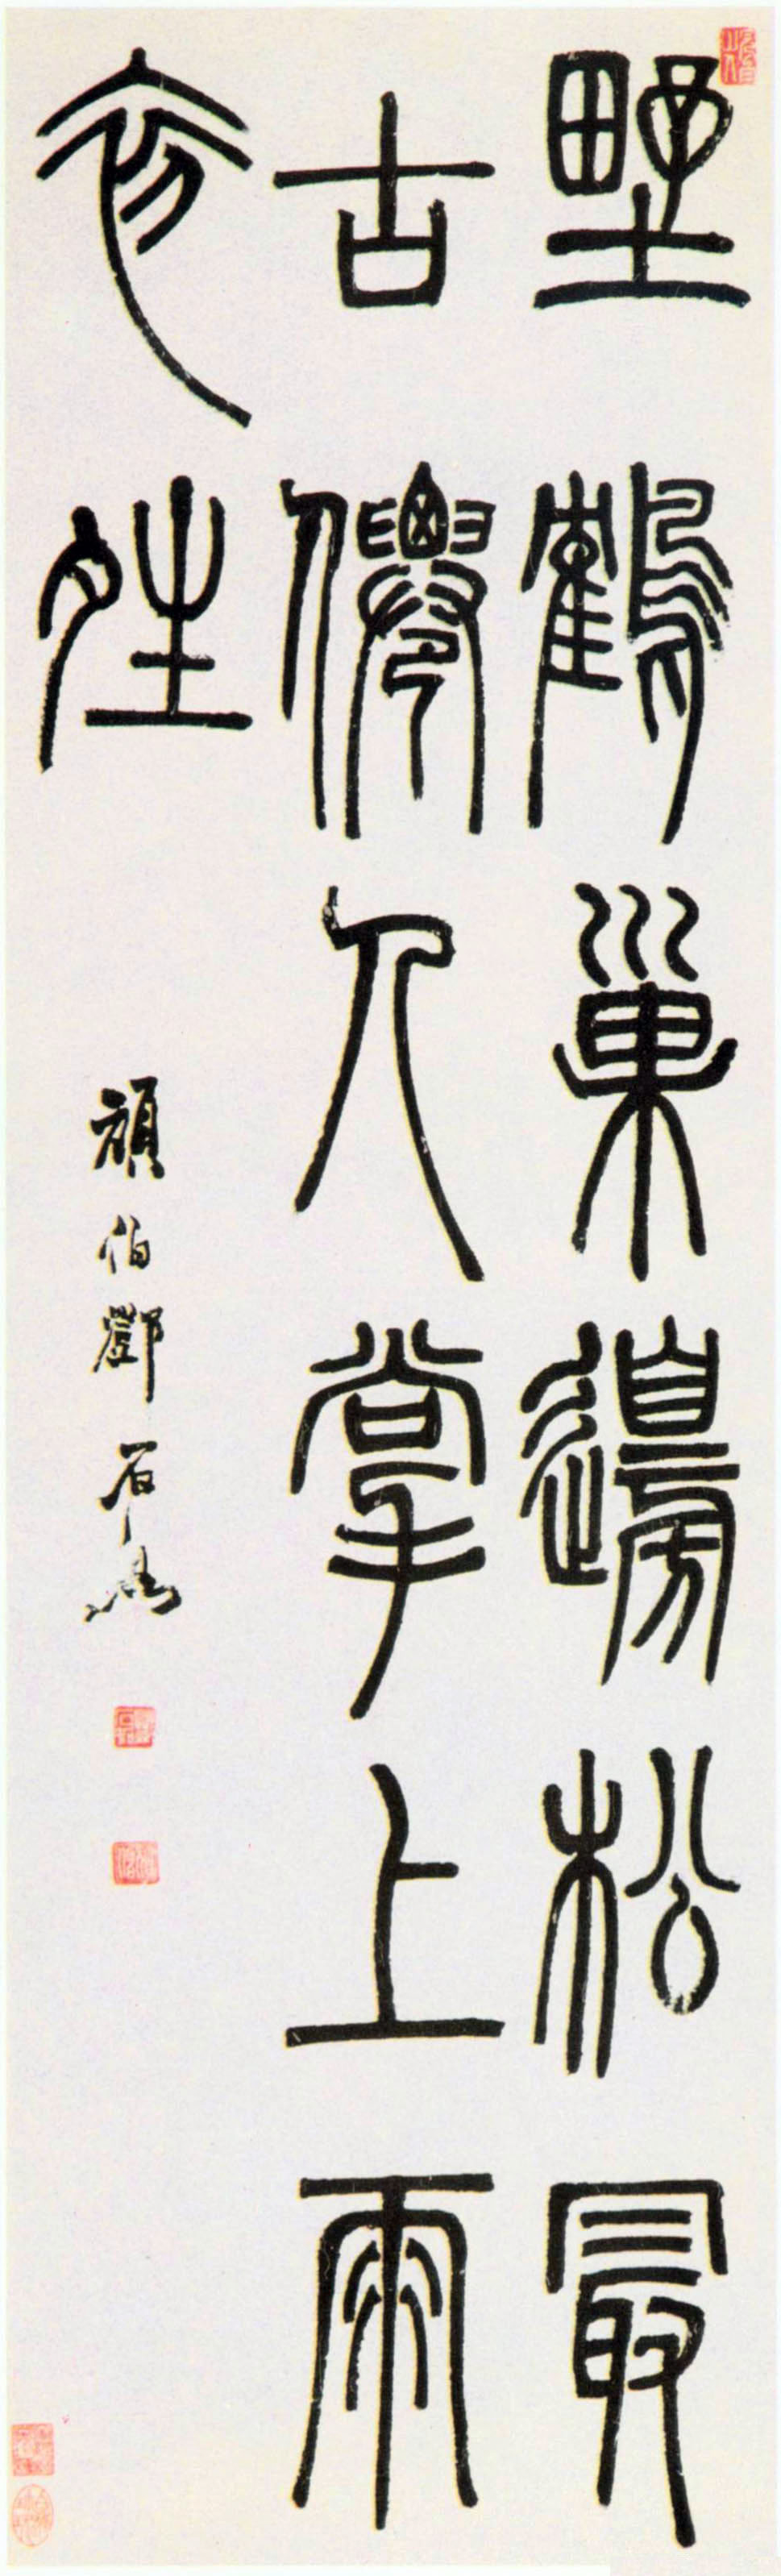 野鶴巢邊松最
古僊人掌上雨
初姓
頑伯鄧石如